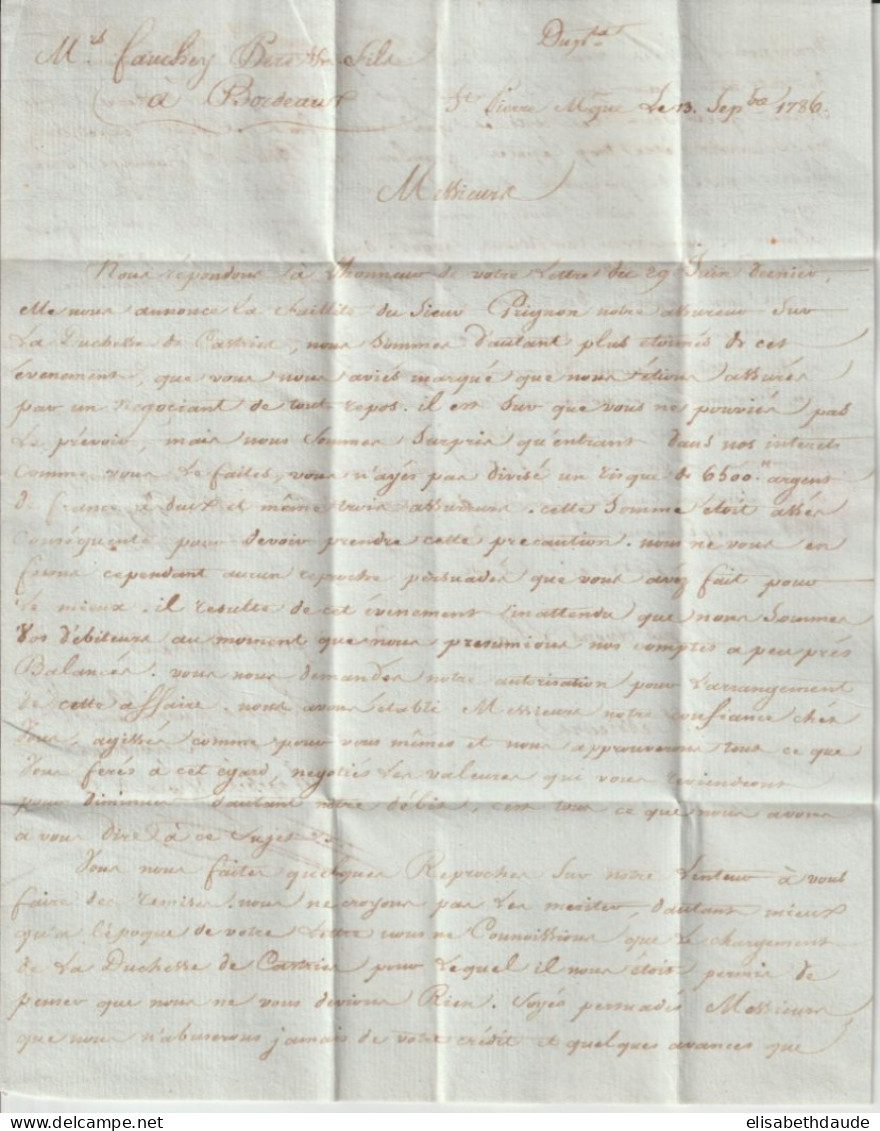 Mrs fauchey Pere & Fils
à Bordeaux
Dupta
St Pierre Mque Le 13. Sepbre 1786.
Messieurs
Nous repondons à Lhonneur de votre Lettre du 29 Juin dernier,
elle nous annonce La faillite du Sieur Prignon notre assureur Sur
La Duchesse de Castries, nous Sommes d'autant plus étonnés de cet
évenement, que vous nous aviés marqué que nous étions assurés
par un negociant de tout repos. il est Sur que vous ne pouviés pas
Le prévoir, mais nous Sommes Surpris qu'entrant dans nos interets
Comme vous Le faites, vous n'ayés pas divisé un risque de 6500.tt argent
de france à deux et même trois assureurs. cette Somme étoit assés
Conséquente pour devoir prendre cette precaution. nous ne vous en
ferons cependant aucun reproche persuadés que vous avéz fait pour
Le mieux. il resulte de cet évenement inattendu que nous Sommes
Vos débiteurs au moment que nous presumions nos comptes a peu près
Balancés. vous nous demandés notre autorisation pour L'arrangement
de cette affaire. nous avons établi Messieurs notre confiance chés
Vous, agissés comme pour vous mêmes et nous approuverons tout ce que
Vous ferés à cet égard, negotiés Les valeurs qui vous reviendront
pour diminuer d'autant notre débit, c'est tout ce que nous avons
a vous dire à ce Sujet.
Vous nous faites quelques Reproches Sur notre Lenteur à vous
faire des remises. nous ne croyons pas Les meriter, d'autant mieux
qu'a l'époque de votre Lettre nous ne Connoissions que Le chargement
de La Duchesse de Castries pour Lequel il nous étoit permis de
penser que nous ne vous devions Rien. Soyés persuadés Messieurs
que nous n'abuserons jamais de votre crédit et quelques avances que
elisabethdaude